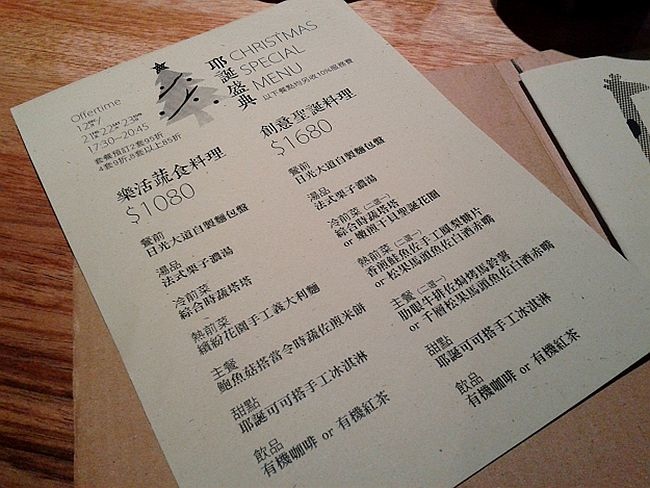 耶誕盛典
CHRISTMAS
SPECIAL
MENU
以下餐點均另收10%服務費
Offertime
12月/
17:30~20:45
套餐預訂2套95折
4套9折,8套以上85折
樂活蔬食料理
$1080
餐前
日光大道自製麵包盤
湯品
法式栗子濃湯
冷前菜
綜合時蔬塔塔
熱前菜
繽紛花園手工義大利麵
主餐
鮑魚菇搭當令時蔬佐煎米餅
甜點
耶誕可可搭手工冰淇淋
飲品
有機咖啡 or 有機紅茶
創意聖誕料理
$1680
餐前
日光大道自製麵包盤
湯品
法式栗子濃湯
冷前菜 (二選一)
綜合時蔬塔塔
or 嫩煎干貝聖誕花圈
熱前菜 (二選一)
香煎鮭魚佐手工鳳梨糖片
or 松臬馬頭魚佐白酒赤嘴
主餐 (二選一)
肋眼牛排佐焗烤馬鈴薯
or 千層松臬馬頭魚佐白酒赤嘴
甜點
耶誕可可搭手工冰淇淋
飲品
有機咖啡 or 有機紅茶